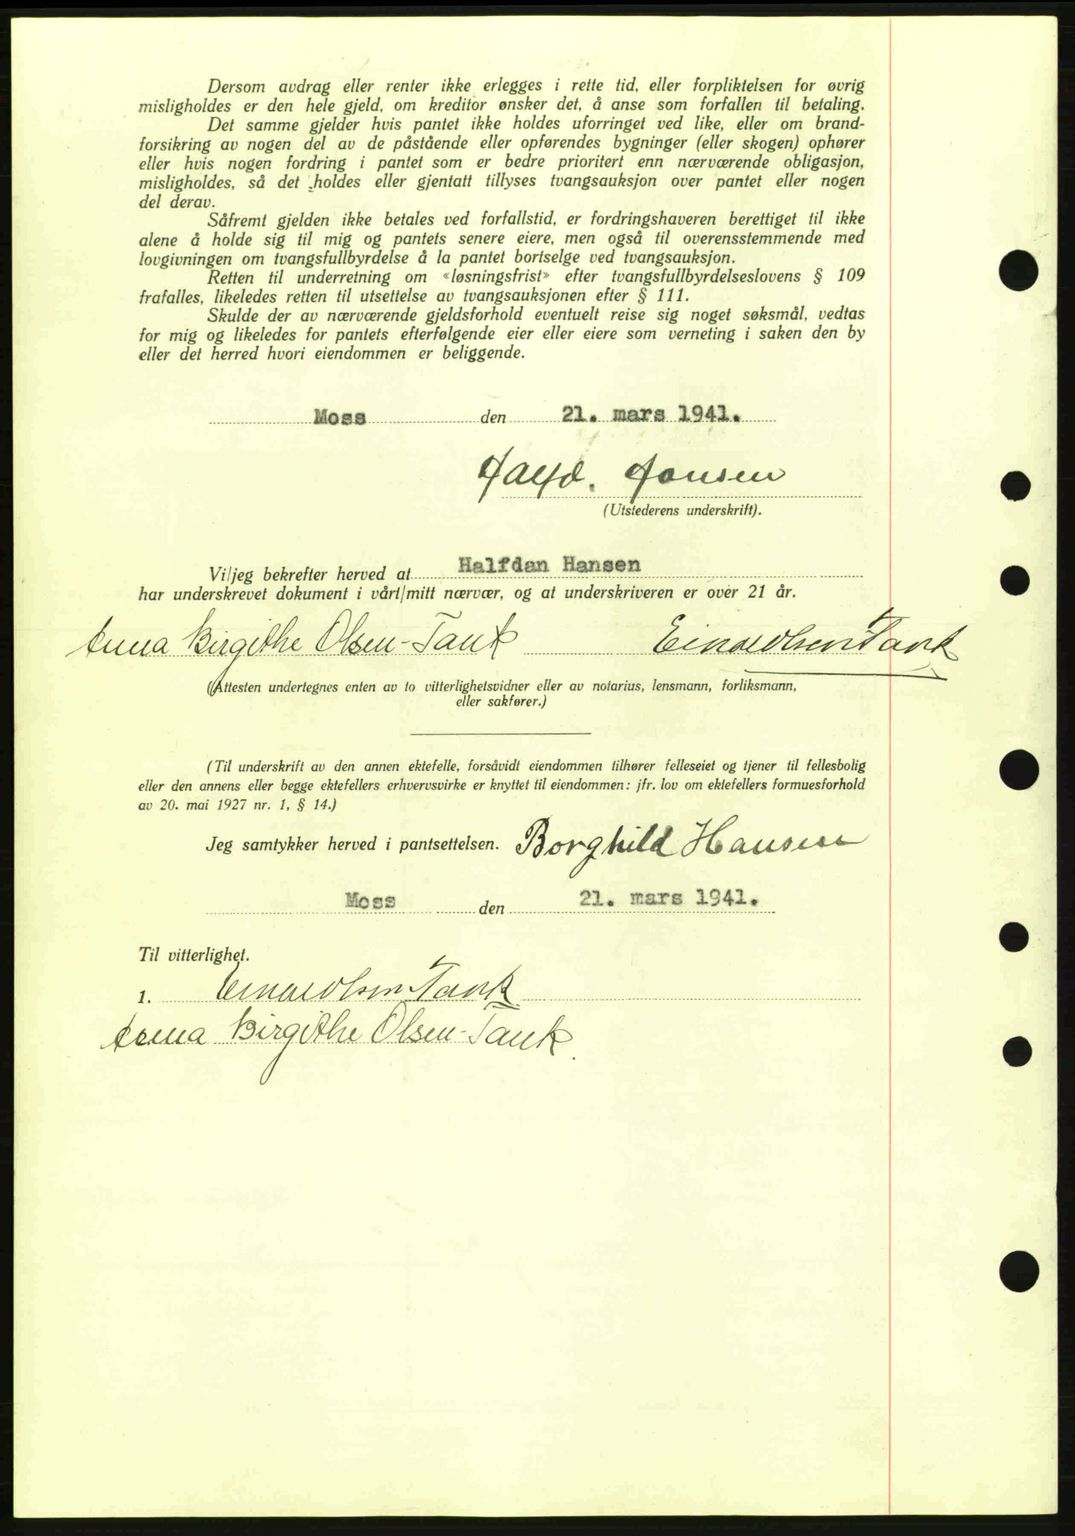 Dersom avdrag eller renter ikke erlegges i rette tid, eller forpliktelsen for øvrig
misligholdes er den hele gjeld, om kreditor ønsker det, å anse som forfallen til betaling.
Det samme gjelder hvis pantet ikke holdes uforringet ved like, eller om brand-
forsikring av nogen del av de påstående eller opførendes bygninger (eller skogen) ophører
eller hvis nogen fordring i pantet som er bedre prioritert enn nærværende obligasjon,
misligholdes, så det holdes eller gjentatt tillyses tvangsauksjon over pantet eller nogen
del derav.
Såfremt gjelden ikke betales ved forfallstid, er fordringshaveren berettiget til ikke
alene å holde sig til mig og pantets senere eiere, men også til overensstemmende med
lovgivningen om tvangsfullbyrdelse å la pantet bortselge ved tvangsauksjon.
Retten til underretning om «løsningsfrist» efter tvangsfullbyrdelseslovens § 109
frafalles, likeledes retten til utsettelse av tvangsauksjonen efter § 111.
Skulde der av nærværende gjeldsforhold eventuelt reise sig noget søksmål, vedtas
for mig og likeledes for pantets efterfølgende eier eller eiere som verneting i saken den by
eller det herred hvori eiendommen er beliggende.
Moss den 21. mars 1941.
Halfd. Hansen
(Utstederens underskrift).
Vi/jeg bekrefter herved at Halfdan Hansen
har underskrevet dokument i vårt/mitt nærvær, og at underskriveren er over 21 år.
Anna Birgithe Olsen-Tank Einar Olsen Tank
(Attesten undertegnes enten av to vitterlighetsvidner eller av notarius, lensmann, forliksmann,
eller sakfører.)
(Til underskrift av den annen ektefelle, forsåvidt eiendommen tilhører felleseiet og tjener til fellesbolig
eller den annens eller begge ektefellers erhvervsvirke er knyttet til eiendommen: jfr. lov om ektefellers formuesforhold
av 20. mai 1927 nr. 1, § 14.)
Jeg samtykker herved i pantsettelsen. Borghild Hansen
Moss den 21. mars 1941.
Til vitterlighet.
1. Einar Olsen Tank
Anna Birgithe Olsen-Tank.